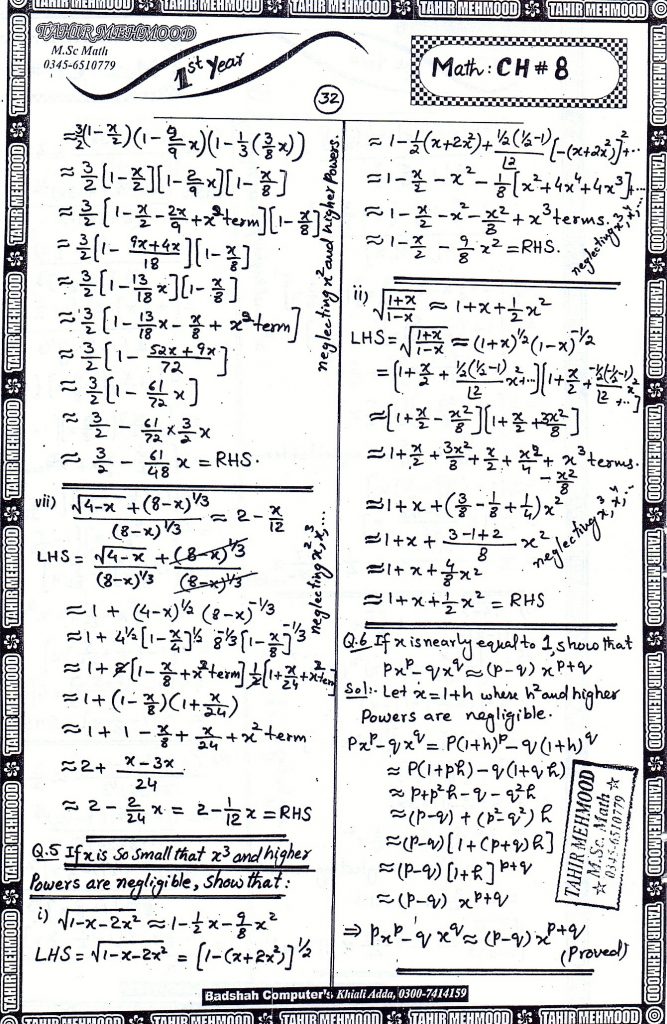 TAHIR MEHMOOD
M.Sc Math
0345-6510779
1st Year
Math: CH # 8
32
≈ 3/2(1-x/2)(1-2/9 x)(1-1/3(3/8 x))
≈ 3/2[1-x/2][1-2/9 x][1-x/8]
≈ 3/2[1-x/2-2x/9+x² term][1-x/8]
≈ 3/2[1-(9x+4x)/18][1-x/8]
≈ 3/2[1-13/18 x][1-x/8]
≈ 3/2[1-13/18 x-x/8+x² term]
≈ 3/2[1-(52x+9x)/72]
≈ 3/2[1-61/72 x]
≈ 3/2-61/72×3/2 x
≈ 3/2-61/48 x = RHS.
neglecting x² and higher Powers.
vii) (√4-x+(8-x)^1/3)/(8-x)^1/3 ≈ 2-x/12
LHS = √4-x/(8-x)^1/3+(8-x)^1/3/(8-x)^1/3
≈ 1+(4-x)^1/2 (8-x)^-1/3
≈ 1+4^1/2[1-x/4]^1/2 8^-1/3[1-x/8]^-1/3
≈ 1+2[1-x/8+x² term] 1/2[1+x/24+x² term
≈ 1+(1-x/8)(1+x/24)
≈ 1+1-x/8+x/24+x² term
≈ 2+(x-3x)/24
≈ 2-2/24 x = 2-1/12 x = RHS
neglecting x², x³, ...
Q.5 If x is so small that x³ and higher
Powers are negligible, show that:
i) √1-x-2x² ≈ 1-1/2 x-9/8 x²
LHS = √1-x-2x² = [1-(x+2x²)]^1/2
≈ 1-1/2(x+2x²)+1/2(1/2-1)/|2 [-(x+2x²)]²+...
≈ 1-x/2-x²-1/8[x²+4x⁴+4x³]+...
≈ 1-x/2-x²-x²/8+x³ terms.
≈ 1-x/2-9/8 x² = RHS.
neglecting x³, x⁴, ...
ii) √(1+x)/(1-x) ≈ 1+x+1/2 x²
LHS = √(1+x)/(1-x) ≈ (1+x)^1/2 (1-x)^-1/2
= [1+x/2+1/2(1/2-1)/|2 x²+...][1+x/2+-1/2(-1/2-1)/|2 x²+...]
≈ [1+x/2-x²/8][1+x/2+3x²/8]
≈ 1+x/2+3x²/8+x/2+x²/4+x³ terms.
-x²/8
≈ 1+x+(3/8-1/8+1/4)x²
≈ 1+x+(3-1+2)/8 x²
≈ 1+x+4/8 x²
≈ 1+x+1/2 x² = RHS
neglecting x³, x⁴, ...
Q.6 If x is nearly equal to 1, show that
px^p-qx^q ≈ (p-q) x^p+q
Sol:- Let x = 1+h where h² and higher
Powers are negligible.
Px^p-qx^q = P(1+h)^p-q(1+h)^q
≈ P(1+ph)-q(1+qh)
≈ P+p²h-q-q²h
≈ (p-q)+(p²-q²) h
≈ (p-q)[1+(p+q)h]
≈ (p-q)[1+h]^p+q
≈ (p-q) x^p+q
⇒ px^p-qx^q ≈ (p-q) x^p+q
(Proved)
TAHIR MEHMOOD
M.Sc. Math
☆ 0345-6510779 ☆
Badshah Computer's Khiali Adda, 0300-7414159